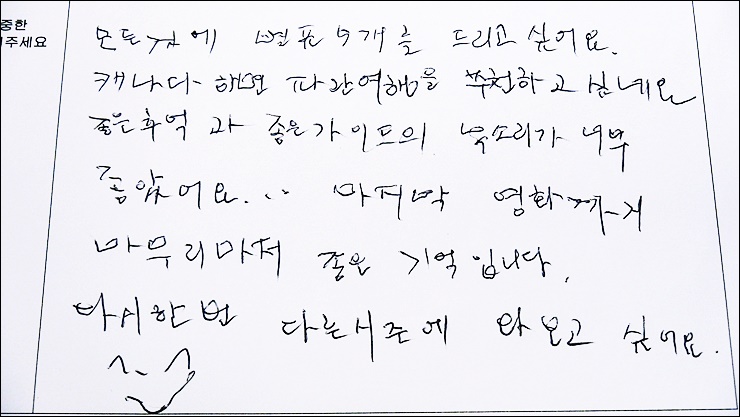 중한
주세요
모든점에 별표 5개를 드리고 싶어요.
캐나다 하면 파란여행을 추천하고 싶네요
좋은추억 과 좋은가이드의 목소리가 너무
좋았어요... 마지막 영화까지
마무리마저 좋은 기억입니다.
다시한번 다른시즌에 와보고 싶어요.
^_^